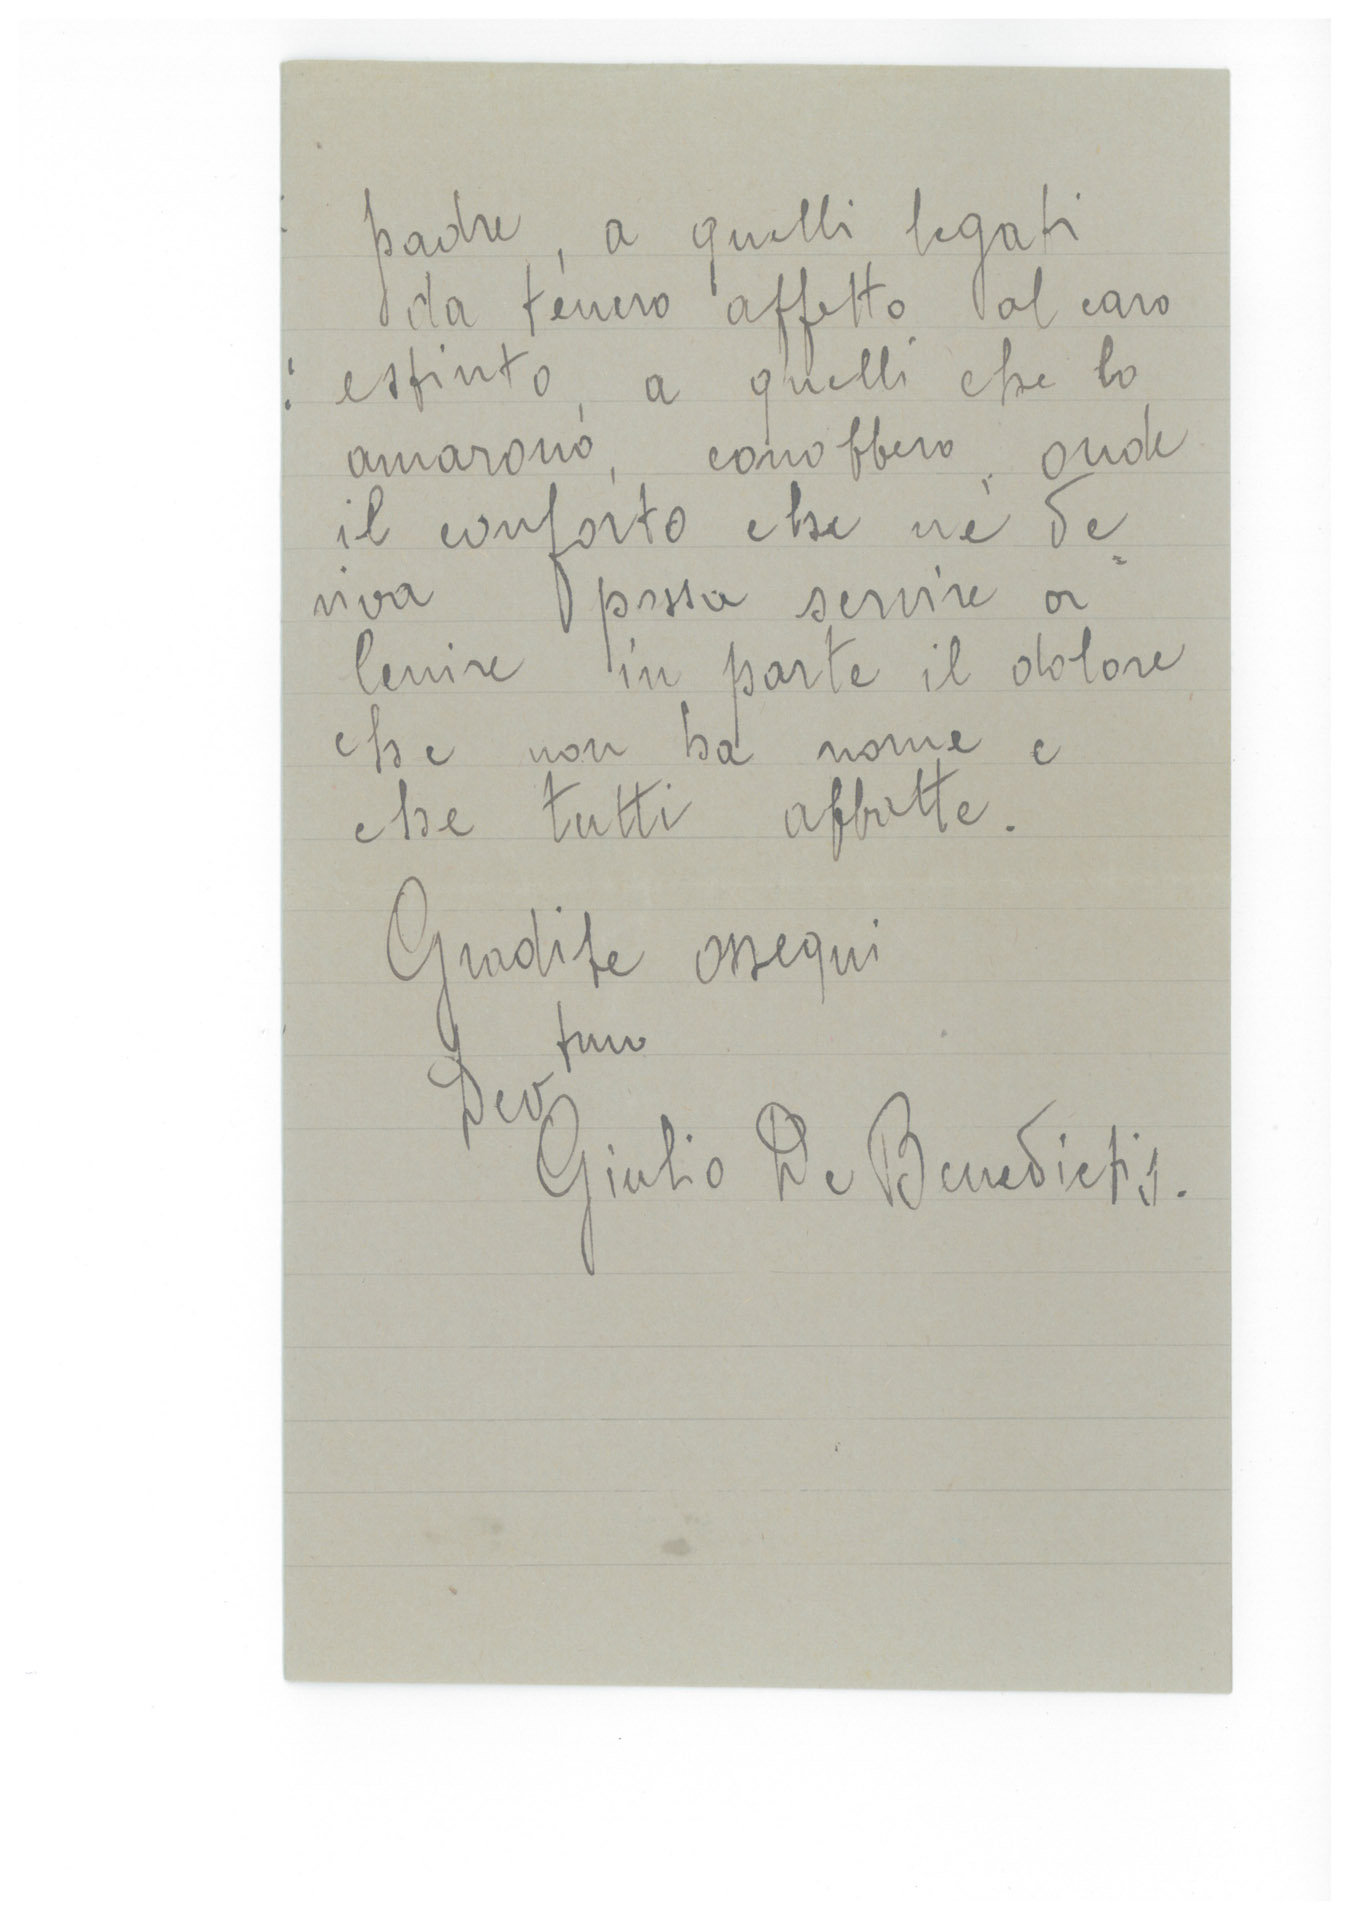 padre, a quelli legati
da tenero affetto al caro
estinto, a quelli che lo
amarono, conobbero, onde
il conforto che ne de=
riva possa servire a
lenire in parte il dolore
che non ha nome e
che tutti abbatte.
Gradite ossequi
Dev tmo
Giulio De Benedictis.